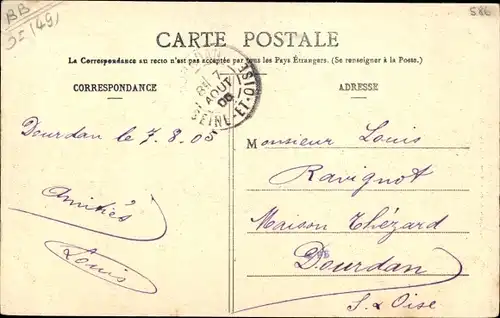 BB
35 (49)
586
CARTE POSTALE
La Correspondance au recto n'est pas acceptée par tous les Pays Étrangers. (Se renseigner à la Poste.)
CORRESPONDANCE
ADRESSE
7
AOUT
SEINE-ET-OISE
Dourdan le 7.8.05
Amitiés
Louis
Monsieur Louis
Ravignot
Maison Thézard
Dourdan
S. & Oise